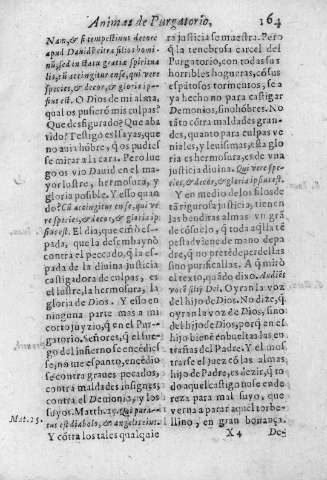 Animas de Purgatorio, 164
Nam, & si tempestiuus decore
apud Dauid citra filios homi
nũ, sed in statu gratiæ spiritua
lis, tũ accingitur ense, qui vere
species, & decor, & gloria ip-
sius est. O Dios de mi alma,
qual os puso mis culpas?
Que desfigurado? Que aba
tido? Testigo es Isayas, que
no auia hõbre, q̃ os pudies
se mirar a la cara. Pero lue
go os vio Dauid en el ma-
yor lustre, hermosura, y
gloria posible. Y esso quan
do? Cũ accingitur ense, qui ve
re species, & decor, & gloria ip-
sius est. El dia, que ciñò es-
pada, que la desembaynò
contra el peccado, q̃ la es-
pada de la diuina justicia
castigadora de culpas, es
el lustre, la hermosura, la
gloria de Dios. Y esso en
ninguna parte mas a mi
corto juyzio, q̃ en el Pur-
gatorio. Señores, q̃ el fue-
go del infierno se encẽdies
se, no me espanto, encẽdio
se contra graues pecados,
contra maldades insignes,
contra el Demonio, y los
suyos. Matth. 25. Qui para-
tus est diabolo, & angelis eius.
Y cõtra los tales qualquie
Mat. 25.
ra justicia se muestra. Pero
q̃ la tenebrosa carcel del
Purgatorio, con todas sus
horribles hogueras, cõ sus
espãtosos tormentos, se a
ya hecho no para castigar
Demonios, sino hõbres. No
tãto cõtra maldades gran-
des, quanto para culpas ve
niales, y leuissimas, esta glo
ria es hermosura, este de vna
justicia diuina. Qui vere spe-
cies, & decor, & gloria ipsius est.
Y en medio de los filos de
tã rigurosa justicia, tienen
las benditas almas vn grã
de cõsuelo, q̃ toda aq̃lla tẽ
pestad viene de mano de pa
dre, q̃ no pretẽde perdellas
sino purificallas. A q̃ mirò
el texto, quãdo dixo. Audiẽt
vocẽ filij Dei. Oyran la voz
del hijo de Dios. No dize, q̃
oyran la voz de Dios, sino
del hijo de Dios, porq̃ en el
hijo biene embueltas las en
trañas del Padre. Y el mos
trarse el juez cõ las almas,
hijo de Padre, es dezir, q̃ to
do aquel castigo no se ende
reza para mal suyo, que
verna a parar aquel torbe-
llino, en gran bonança.
X4 De-